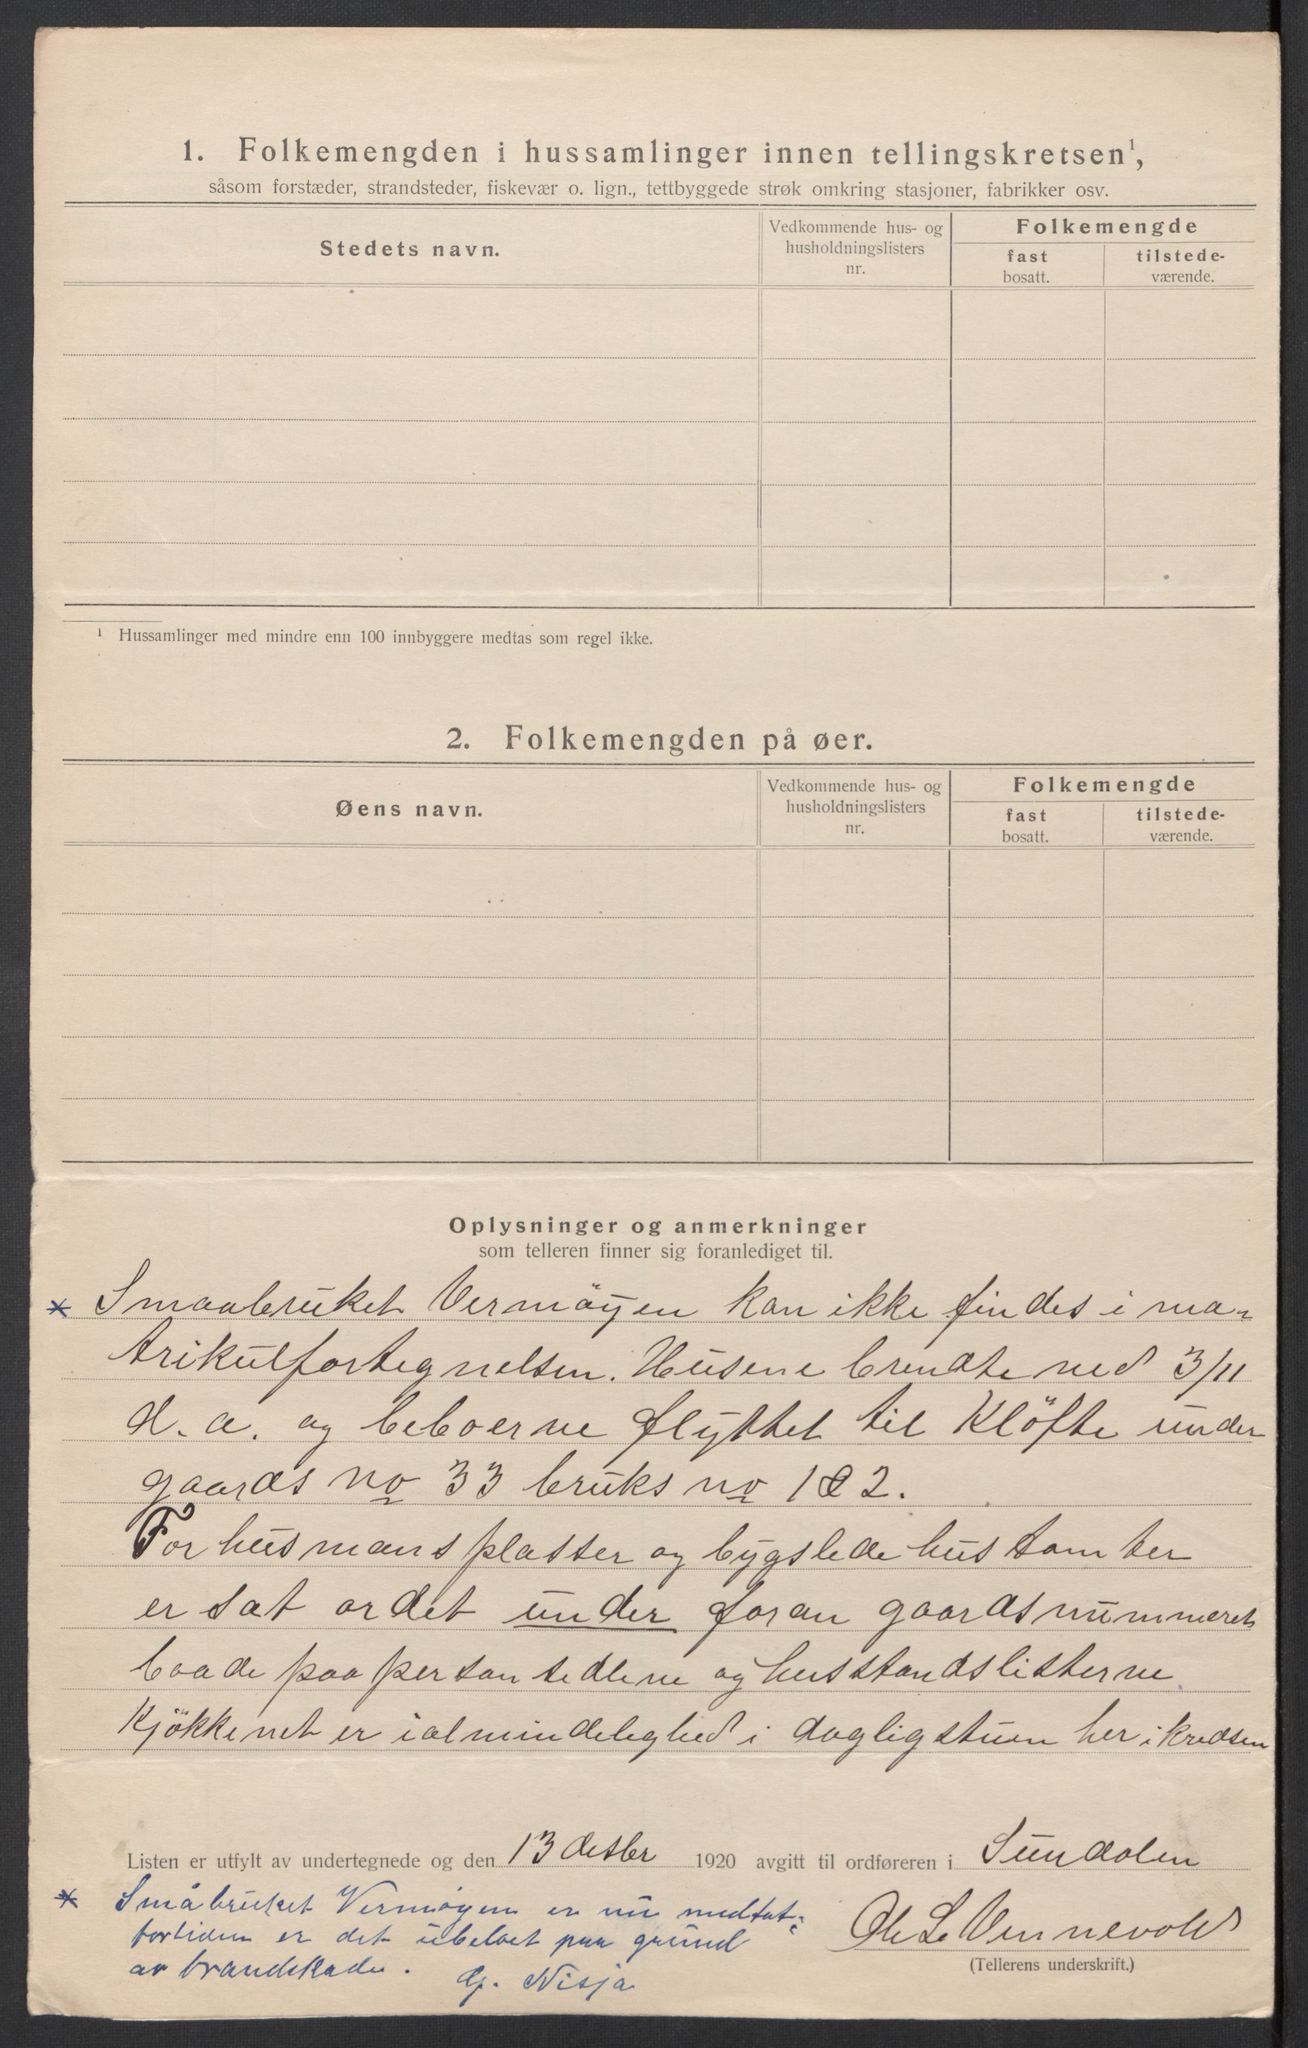 1. Folkemengden i hussamlinger innen tellingskretsen¹,
såsom forstæder, strandsteder, fiskevær o. lign., tettbyggede strøk omkring stasjoner, fabrikker osv.
Stedets navn.
Vedkommende hus- og
husholdningslisters
nr.
Folkemengde
fast
bosatt.
tilstede-
værende.
¹ Hussamlinger med mindre enn 100 innbyggere medtas som regel ikke.
2. Folkemengden på øer.
Øens navn.
Vedkommende hus- og
husholdningslisters
nr.
Folkemengde
fast
bosatt.
tilstede-
værende.
Oplysninger og anmerkninger
som telleren finner sig foranlediget til.
* Smaabruket Vermöyen kan ikke findes i ma-
trikulfortegnelsen. Husene brendte ned 3/11
d. a. og beboerne flyttet til Klöfte under
gaards no 33 bruks no 1 & 2.
For husmansplasser og bygslede hustomter
er sat ordet under foran gaardsnummeret
baade paa personsedlene og husstandslisterne
Kjökkenet er i almindelighed i dagligstuen her i kredsen
Listen er utfylt av undertegnede og den 13 desbr 1920 avgitt til ordføreren i Sundalen
Ole L. Vennevold
(Tellerens underskrift.)
* Småbruket Vermøyen er nu medtat;
fortiden er det ubeboet paa grund
av brandskade. G. Nisja